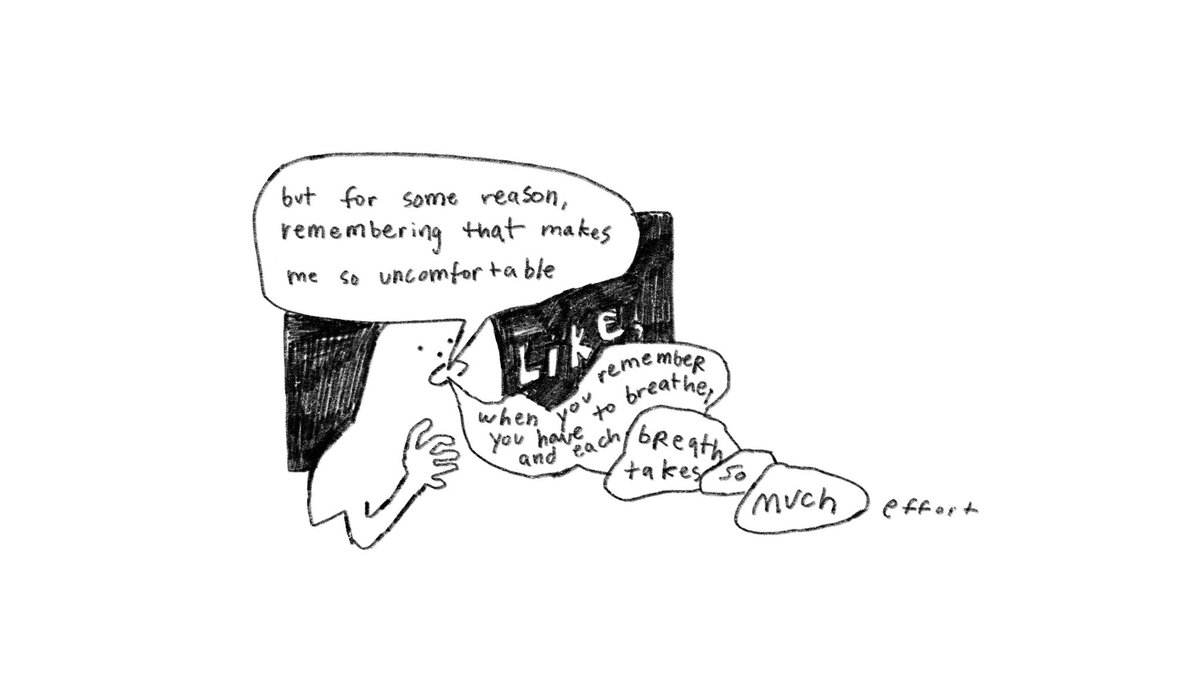 but for some reason,
remembering that makes
me so uncomfortable
LIKE,
when you remember
you have to breathe,
and each
breath
takes
so
much
effort